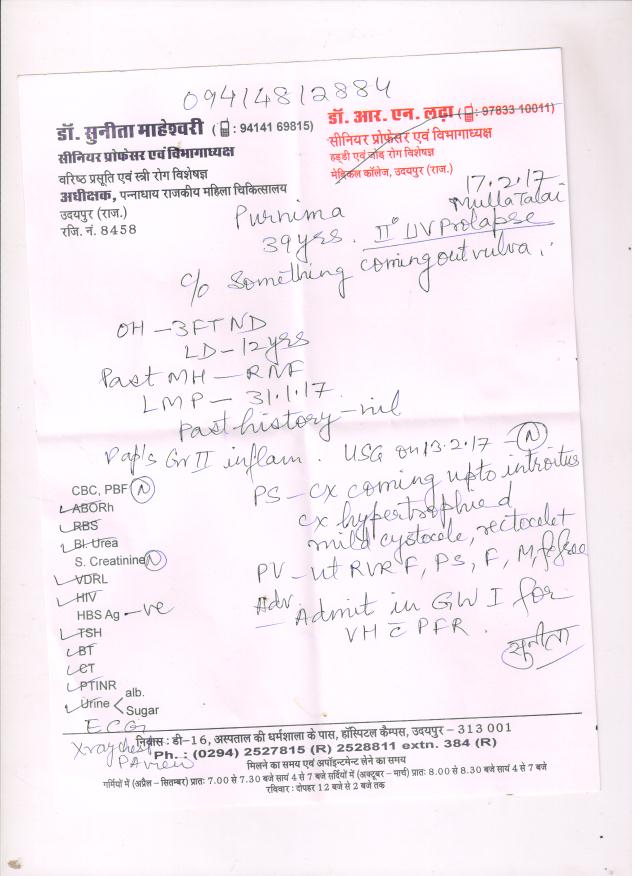 09414812884
डॉ. सुनीता माहेश्वरी (: 94141 69815)
सीनियर प्रोफेसर एवं विभागाध्यक्ष
वरिष्ठ प्रसूति एवं स्त्री रोग विशेषज्ञ
अधीक्षक, पन्नाधाय राजकीय महिला चिकित्सालय
उदयपुर (राज.)
रजि. नं. 8458
डॉ. आर. एन. लढ़ा (: 97833 10011)
सीनियर प्रोफेसर एवं विभागाध्यक्ष
हड्डी एवं जोड़ रोग विशेषज्ञ
मेडिकल कॉलेज, उदयपुर (राज.)
17.2.17
Mulla Talai
Purnima
39yrs. II° UV Prolapse
C/o Something coming out vulva.
OH - 3FTND
LD - 12yrs
Past MH - RNF
LMP - 31.1.17.
Past history - nil
Pap's Gr II inflam. USG on 13.2.17 - N
PS - cx coming upto introitus
cx hypertrophied
mild cystocele, rectocele+
PV - ut RVRF, PS, F, M, fx free
Adv. - Admit in GW I for
VH c̄ PFR.
सुनीता
CBC, PBF N
ABORh
RBS
Bl. Urea
S. Creatinine N
VDRL
HIV
HBS Ag -ve
TSH
BT
CT
PTINR
Urine < alb.
Sugar
ECG
X-ray chest
PA view
निवास : डी-16, अस्पताल की धर्मशाला के पास, हॉस्पिटल कैम्पस, उदयपुर - 313 001
Ph. : (0294) 2527815 (R) 2528811 extn. 384 (R)
मिलने का समय एवं अपॉइन्टमेन्ट लेने का समय
गर्मियों में (अप्रैल - सितम्बर) प्रातः 7.00 से 7.30 बजे सायं 4 से 7 बजे सर्दियों में (अक्टूबर - मार्च) प्रातः 8.00 से 8.30 बजे सायं 4 से 7 बजे
रविवार : दोपहर 12 बजे से 2 बजे तक